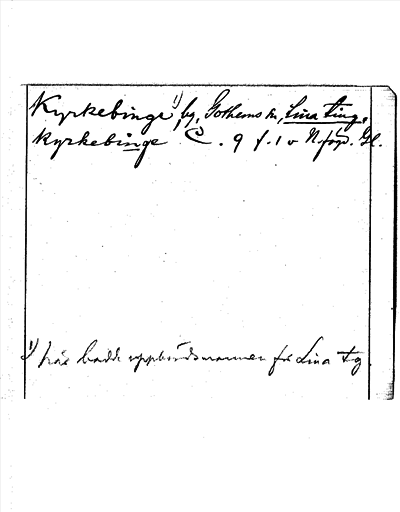 Kyrkebinge 1), by, Gothems sn, Lina ting,
Kyrkebinge C. 9 f. 1 v N. förp. Gl.
1) här hade uppbördsmannen för Lina tg